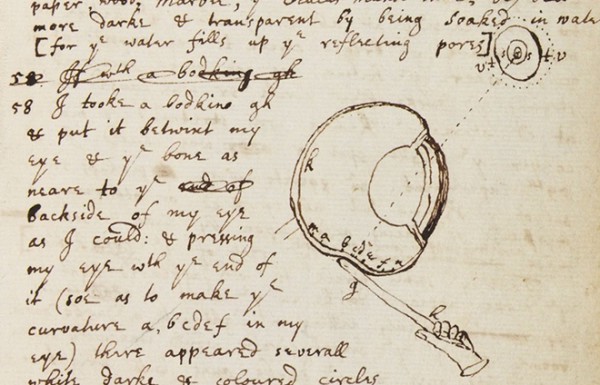 paper, wood, Marble, ye
more darke & transparent by being soaked in wate
[for ye water fills up ye reflecting pores]
58 I tooke a bodkine gh
& put it betwixt my
eye & ye bone as
neare to ye end of
backside of my eye
as I could: & pressing
my eye wth ye end of
it (soe as to make ye
curvature a, bcdef in my
eye) there appeared severall
white darke & coloured circles
k
g
h